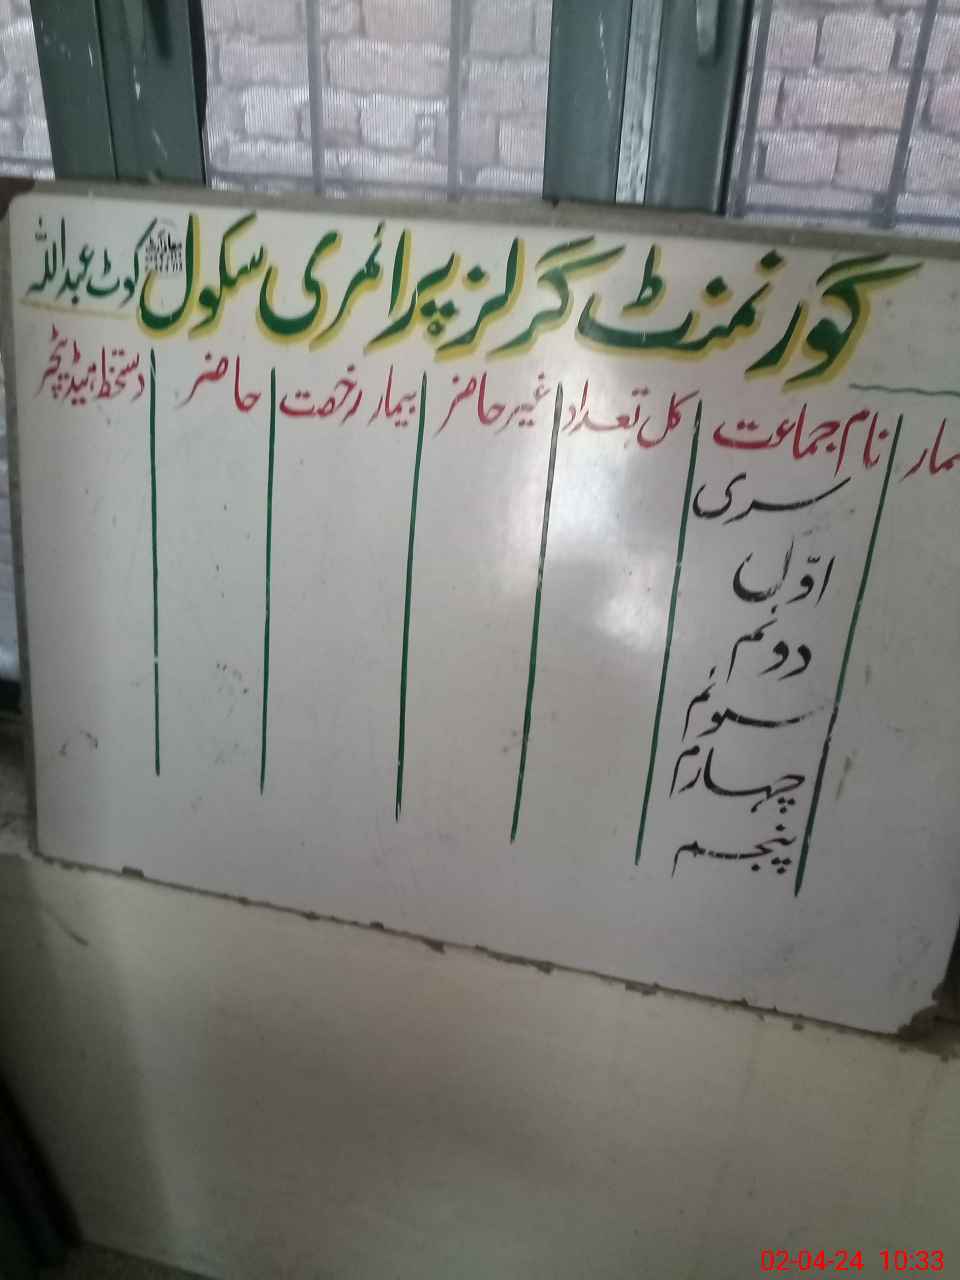 گورنمنٹ گرلز پرائمری سکول کوٹ عبداللہ
مار نام جماعت کل تعداد غیر حاضر بیمار رخصت حاضر دستخط ہیڈ ٹیچر
سری
اوّل
دوئم
سوئم
چہارم
پنجم
02-04-24 10:33